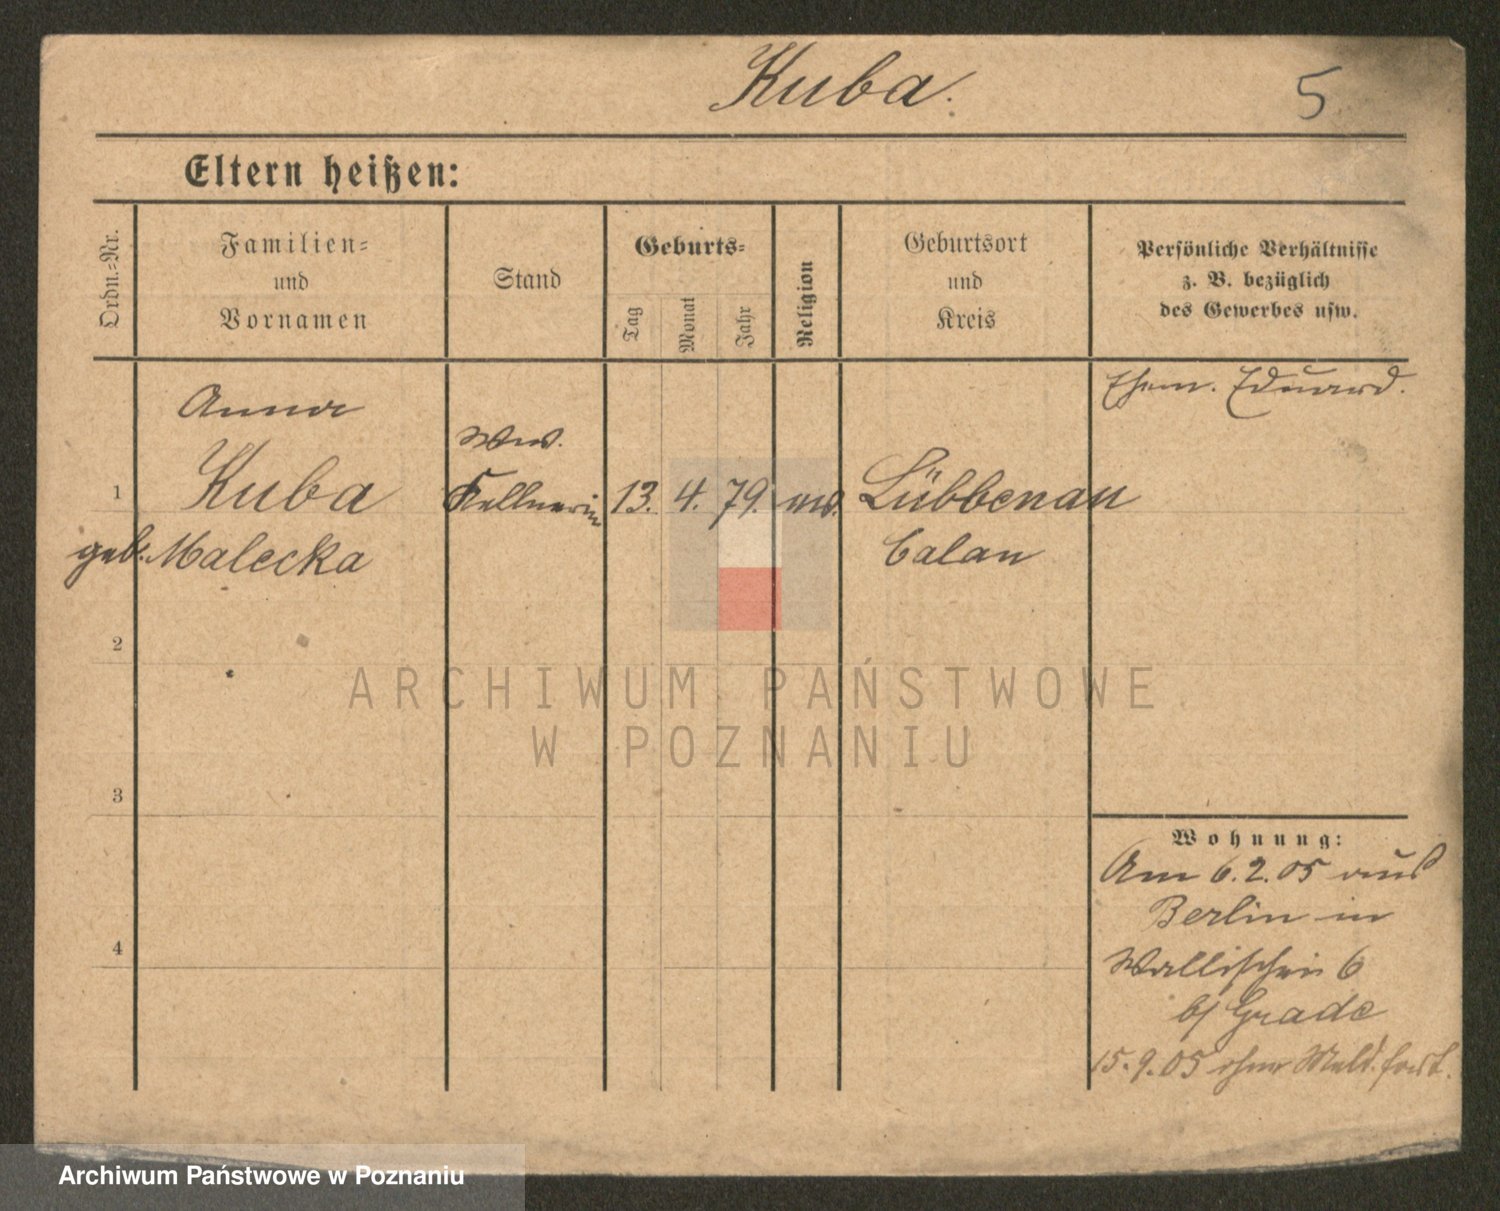 Kuba.
5
Eltern heißen:
Ordn.=Nr.
Familien=
und
Vornamen
Stand
Geburts=
Tag
Monat
Jahr
Religion
Geburtsort
und
Kreis
Persönliche Verhältnisse
z. B. bezüglich
des Gewerbes usw.
Ehem. Eduard.
Anna
Ww.
1 Kuba Kellnerin 13. 4. 79. Lübbenau
geb. Malecka Calau
2
3
4
ARCHIWUM PAŃSTWOWE
W POZNANIU
Wohnung:
Am 6.2.05 aus
Berlin in
Wallischei 6
b/ Grade
15.9.05 ohne Meld. fort.
Archiwum Państwowe w Poznaniu